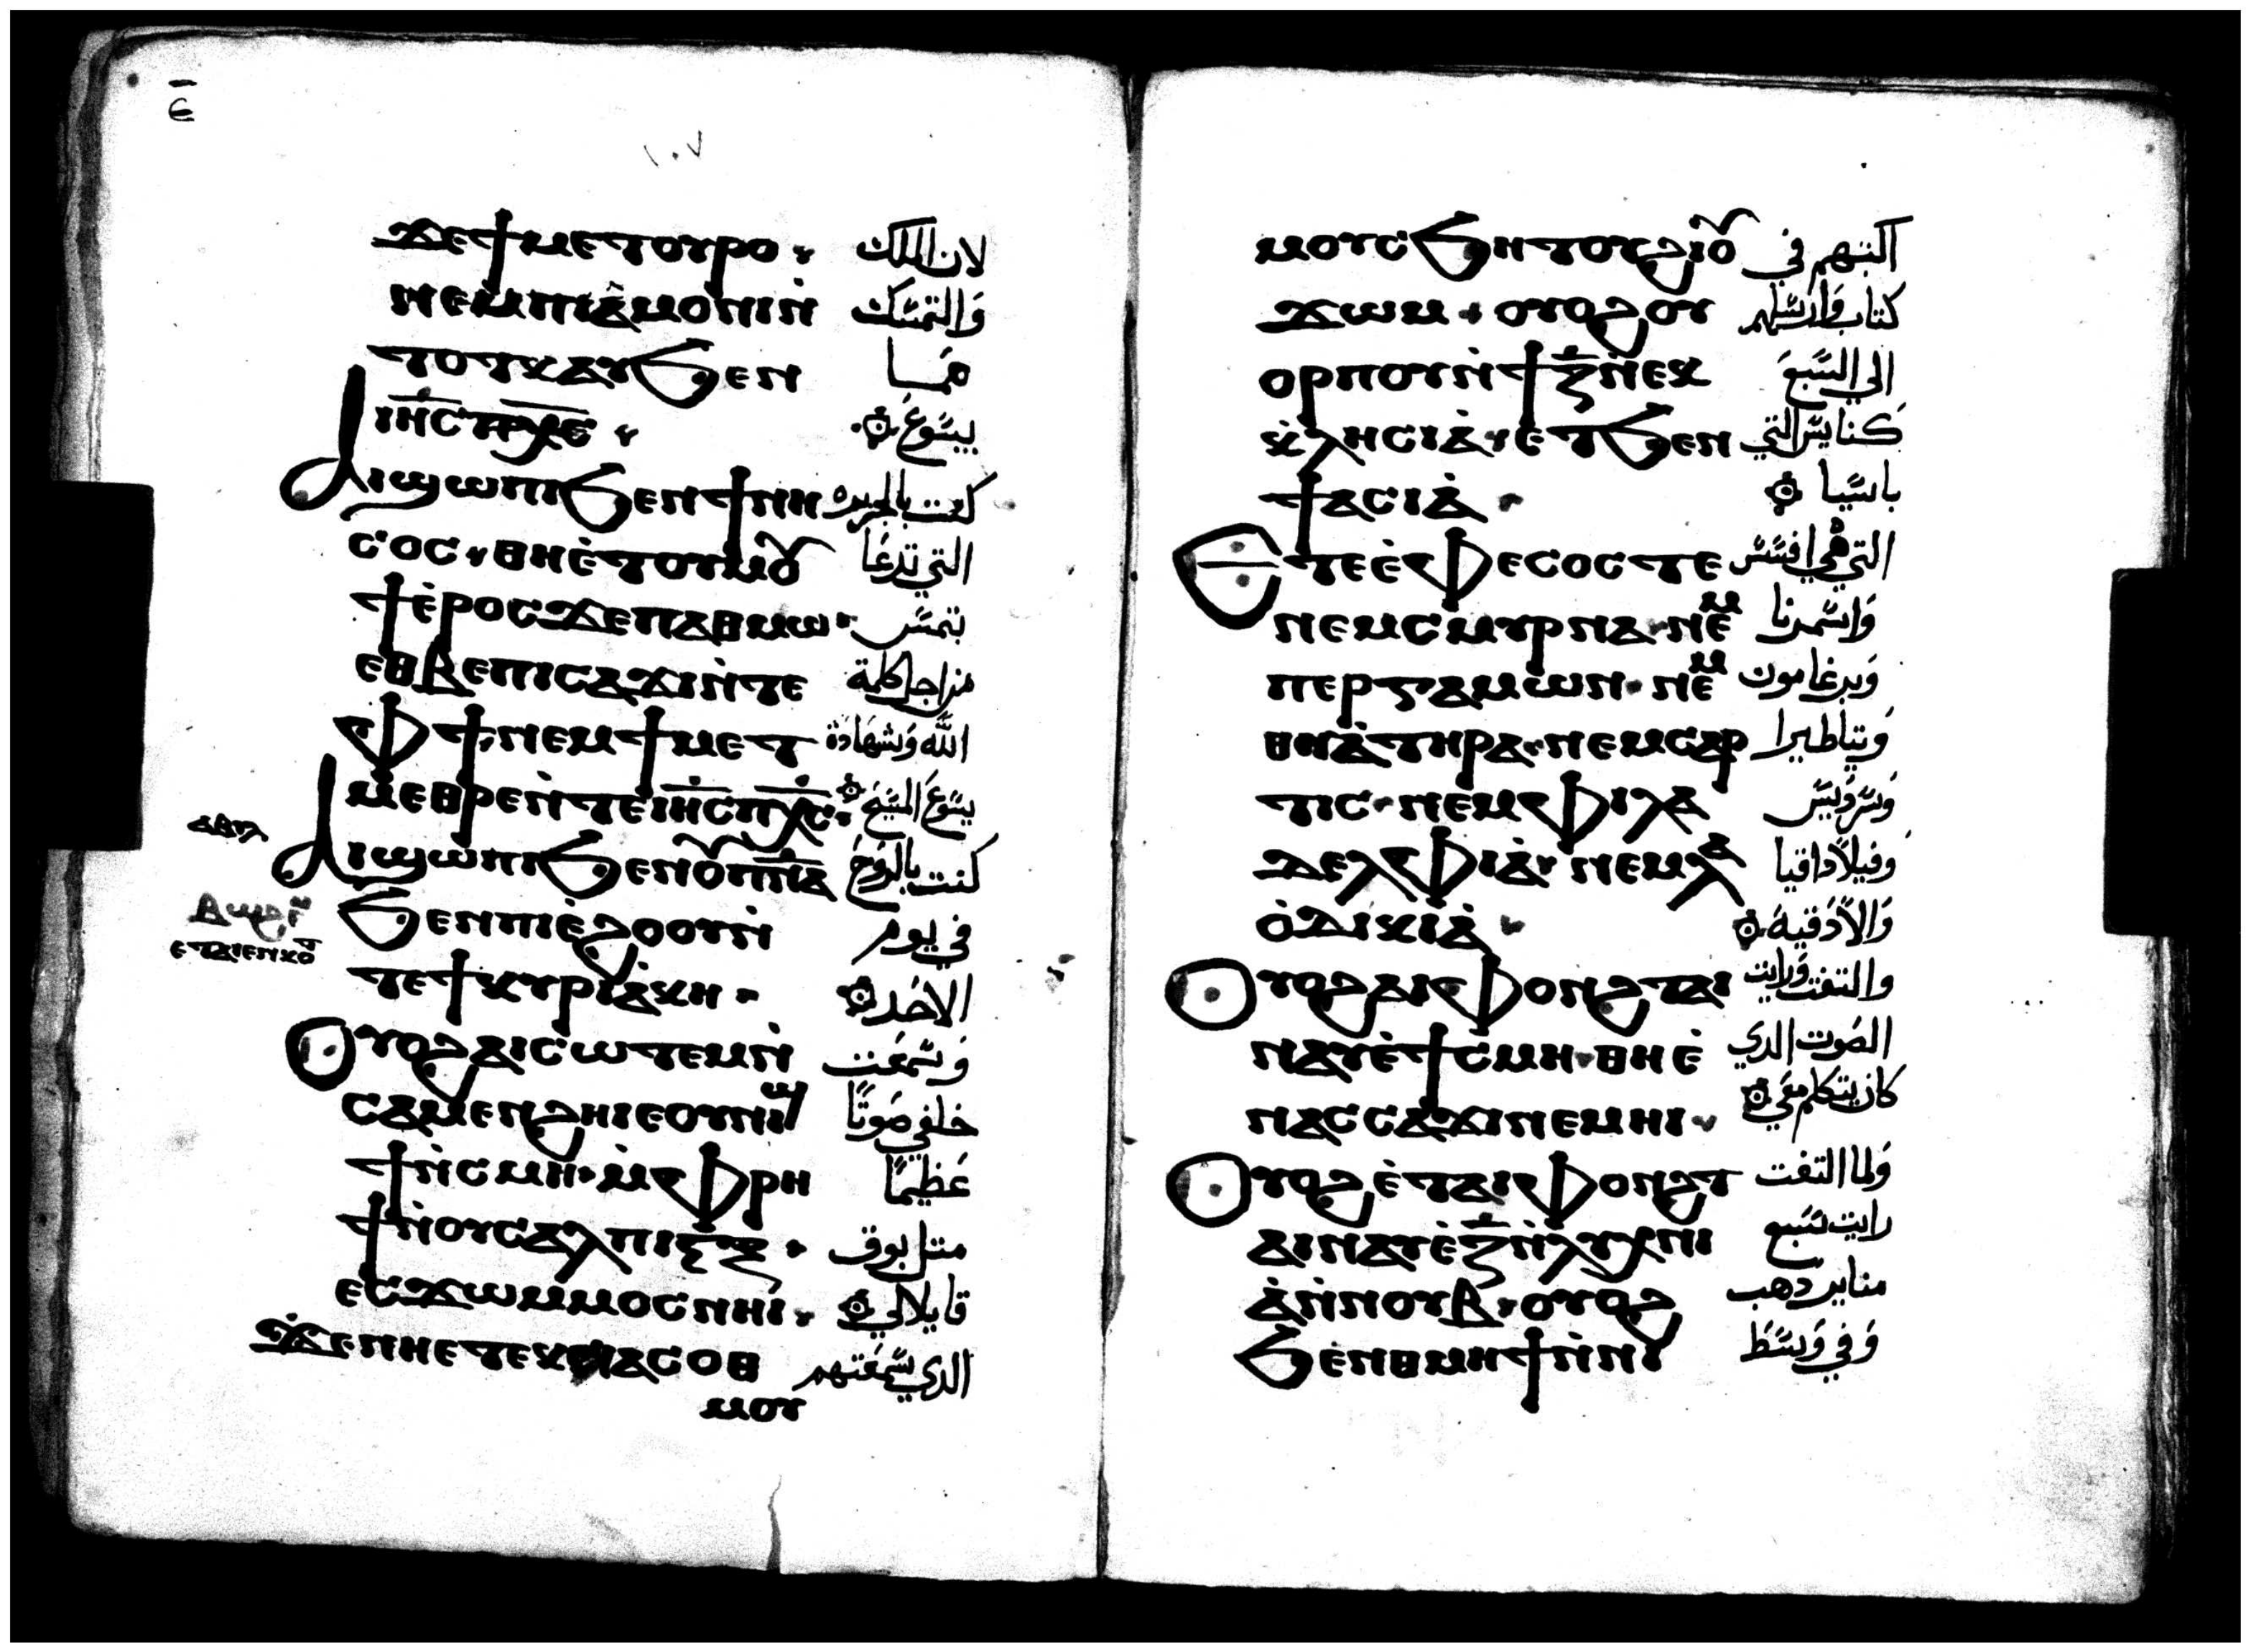 ⲉ̅
١٠٧
ϫⲉϯⲙⲉⲧⲟⲩⲣⲟ · لان الملك
ⲛⲉⲙⲡⲓⲁ̀ⲙⲟⲛⲓⲛ̀ وَالتمسّك
ⲧⲟⲧⲕⲁⲩϧⲉⲛ هما
ⲓⲏⲥ ⲡⲭⲥ · بيسَوعَ
ⲁⲓϣⲱⲡⲓϧⲉⲛϯⲛⲏ كنت بالجزيره
ⲥⲟⲥ · ⲑⲏⲉ̀ⲧⲟⲩⲙⲟⲩ التي تدعَا
ϯⲉ̀ⲣⲟⲥϫⲉⲡⲁⲑⲙⲱ · بتمسَ
ⲉⲑⲃⲉⲡⲓⲥⲁϫⲓⲛ̀ⲧⲉ من اجل كلمة
ⲫϯ · ⲛⲉⲙϯⲙⲉⲧ الله وَشهَادَة
ⲙⲉⲑⲣⲉⲛ̀ⲧⲉⲓⲏⲥⲡⲭⲥ · يسَوعَ المسَيحَ
ⲁⲓϣⲱⲡⲓϧⲉⲛⲟⲩⲡⲛⲁ كنت بالروَحَ
ϧⲉⲛⲡⲓⲉ̀ϩⲟⲟⲩⲛ̀ في يوم
ⲧⲉϯⲕⲩⲣⲓⲁⲕⲏ · الاحَد
ⲟⲩⲟϩⲁⲓⲥⲱⲧⲉⲙⲛ̀ وَسَمعَت
ⲥⲁⲙⲉⲛϩⲏⲓⲉⲟⲩⲛⲓϣ خلفي صَوتًا
ϯⲛ̀ⲥⲙⲏ · ⲙ̀ⲫⲣⲏ عَظيمًا
ϯⲛ̀ⲟⲩⲥⲁⲗⲡⲓⲅⲝ · متل بوق
ⲉⲥϫⲱⲙⲙⲟⲥⲛⲏⲓ · قايلا لي
ϫⲉⲛⲏⲉⲧⲉⲕⲛⲁⲥⲟⲑ الدي سَمعَتهم
ⲙⲟⲩ
ⲙⲟⲩⲥϧⲏⲧⲟⲩϩⲓⲟⲩ اكتبهم في
ϫⲱⲙ · ⲟⲩⲟϩⲟⲩ كتاب وَارسَلهم
ⲟⲣⲡⲟⲩⲛ̀ϯⲍ̅ⲛ̀ⲉⲕ الي السَبعَ
ⲕ̀ⲗⲏⲥⲓⲁ̀ · ⲉⲧϧⲉⲛ كنايسَ التي
ϯⲁⲥⲓⲁ̀ · باسَيا
ⲉⲧⲉⲉ̀ⲫⲉⲥⲟⲥⲧⲉ التي هي افسَسَ
ⲛⲉⲙⲥⲙⲩⲣⲛⲁ · ⲛⲉⲙ وَاسَمرنا
ⲡⲉⲣⲅⲁⲙⲱⲛ · ⲛⲉⲙ وَبرغامون
ⲑⲏⲁ̀ⲧⲏⲣⲁ · ⲛⲉⲙⲥⲁⲣ وَتياطيرا
ⲧⲓⲥ · ⲛⲉⲙⲫⲓⲗⲁ وَسَروَيسَ
ⲇⲉⲗⲫⲓⲁ̀ · ⲛⲉⲙⲗⲁ وفيلاداقيا
ⲟ̀ⲇⲓⲕⲓⲁ̀ · وَالادَقيهَ
ⲟⲩⲟϩⲁⲓⲫⲟⲛϩⲧⲁⲓ والتفت وَرايت
ⲛⲁⲩⲉ̀ϯⲥⲙⲏ · ⲑⲏⲉ̀ الصَوت الدي
ⲛⲁⲥⲥⲁϫⲓⲛⲉⲙⲏⲓ · كان يتكلم معَي
ⲟⲩⲟϩⲉ̀ⲧⲁⲓⲫⲟⲛϩⲧ وَلما التفت
ⲁⲓⲛⲁⲩⲉ̀ⲍ̅ⲛ̀ⲗⲩⲭⲛⲓ رايت سَبع
ⲁ̀ⲛ̀ⲛⲟⲩⲃ · ⲟⲩⲟϩ مناير دهب
ϧⲉⲛⲑⲙⲏϯⲛ̀ⲛⲓ وَفي وَسَطَ